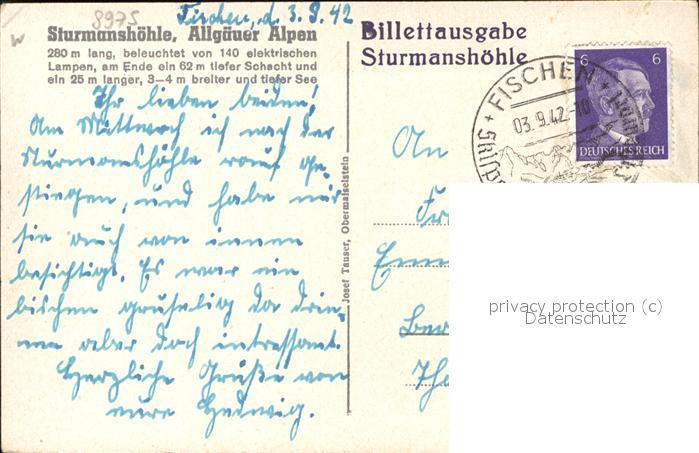 8975
Fischen, d. 3.9.42
Sturmanshöhle, Allgäuer Alpen
280 m lang, beleuchtet von 140 elektrischen
Lampen, am Ende ein 62 m tiefer Schacht und
ein 25 m langer, 3—4 m breiter und tiefer See
Ihr lieben beiden!
Am Mittwoch ich nach der
Sturmannshöhle rauf ge-
stiegen, und habe mir
sie auch von innen
besichtigt. Es war ein
bischen gruselig da drin-
nen aber doch intressant.
Herzliche Grüße von
eure Hedwig.
Josef Tauser, Obermaiselstein
Billettausgabe
Sturmanshöhle
FISCHEN
03.9.42.-10
6 6
DEUTSCHES REICH
An
privacy protection (c)
Datenschutz